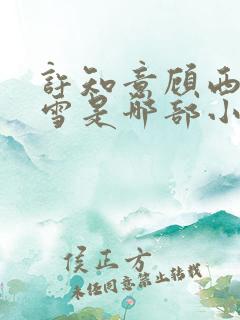 許知意顾西
雪是那部小
侯正方
未经同意禁止转载